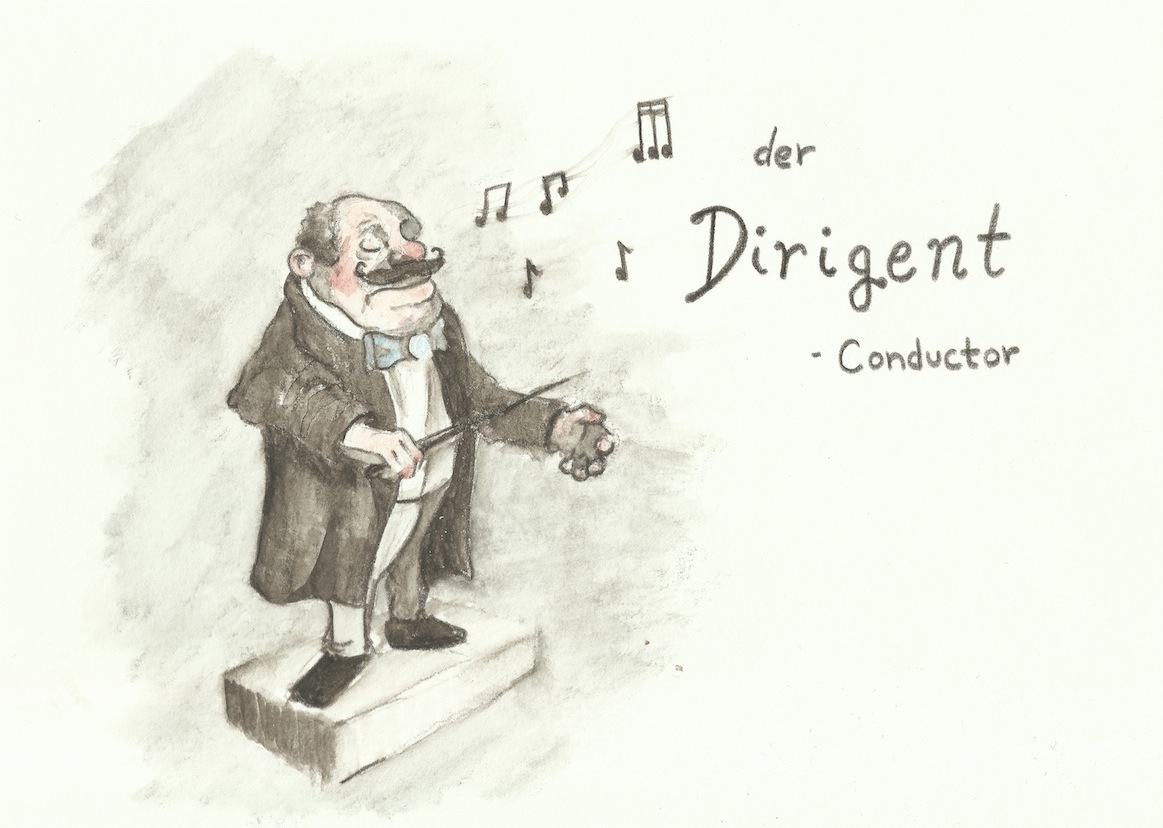 der
Dirigent
- Conductor